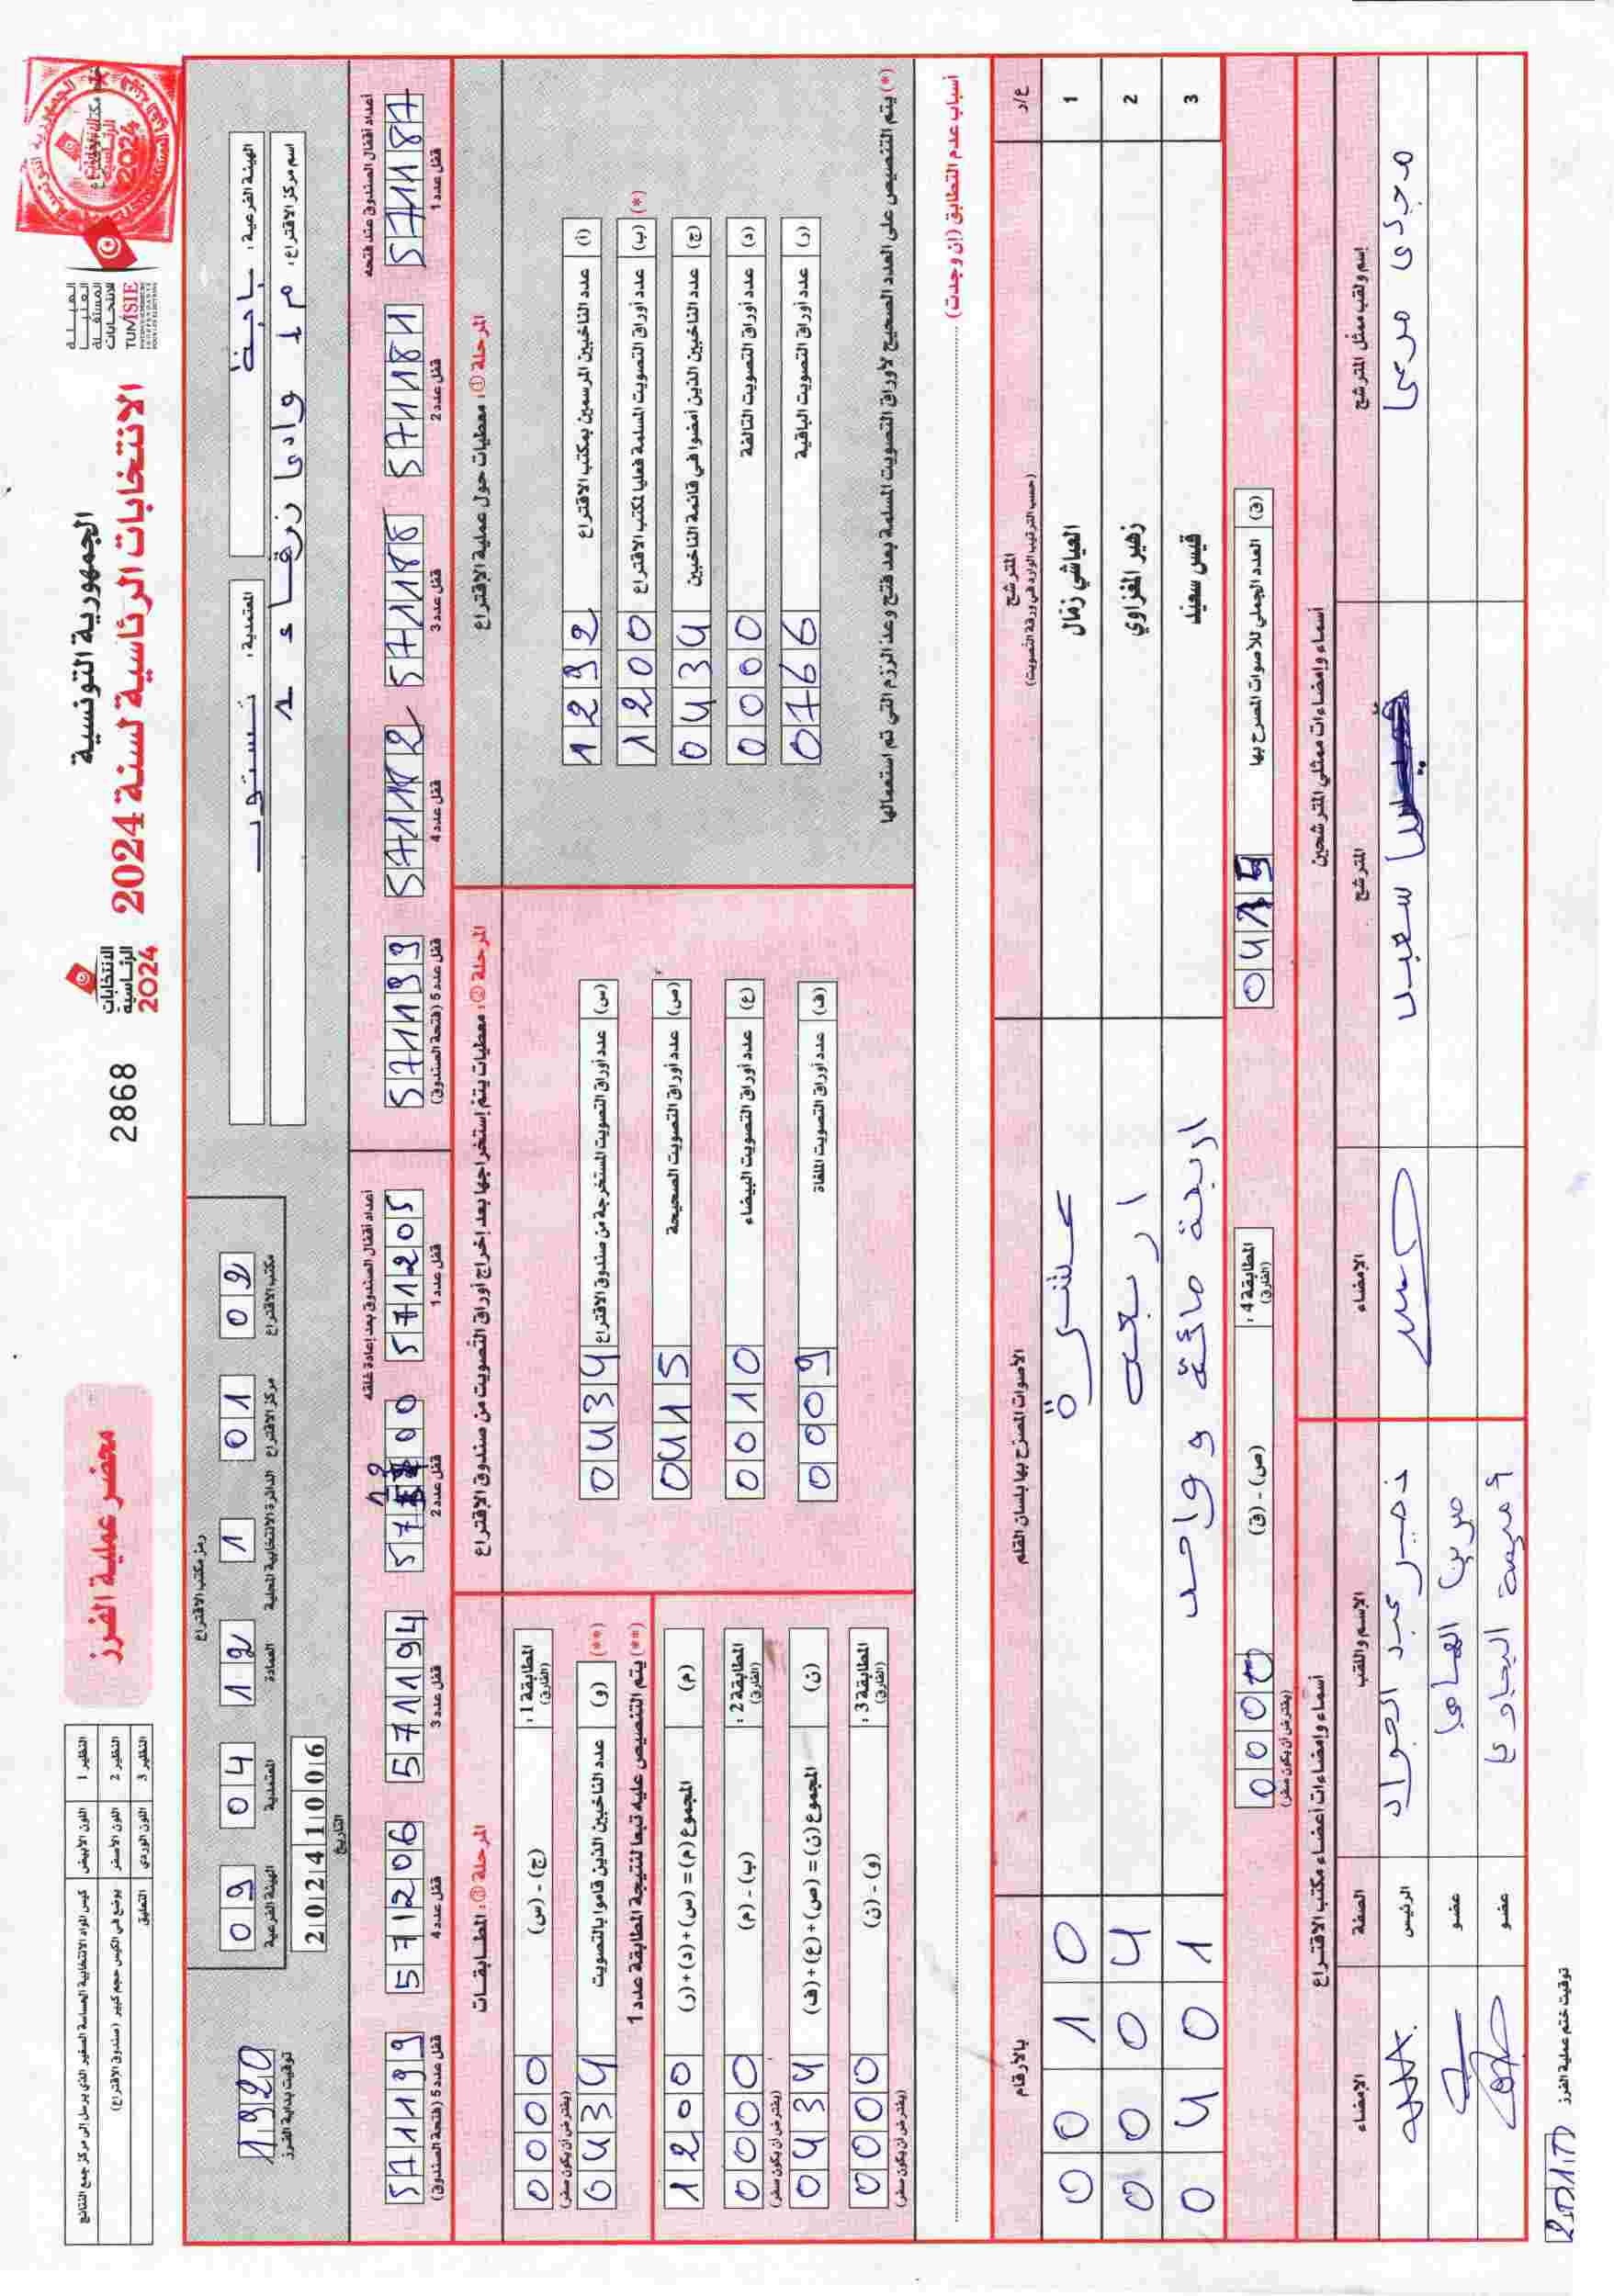 الجمهورية التونسية
الانتخابات الرئاسية لسنة 2024
الهيئة
العليا
المستقلة
للانتخابات
TUNISIE
الانتخابات
الرئاسية
2024
2868
محضر عملية الفرز
النظير 1 اللون الأبيض كيس المواد الانتخابية الحساسة الصغير الذي يرسل إلى مركز جمع النتائج
النظير 2 اللون الأصفر يوضع في الكيس حجم كبير (صندوق الاقتراع)
النظير 3 اللون الوردي التعليق
الهيئة الفرعية : باجة
المعتمدية : تستور
اسم مركز الاقتراع: م ا وادي زرقاء - 1
رمز مكتب الاقتراع
09 04 12 1 01 02
الهيئة الفرعية المعتمدية العمادة الدائرة الانتخابية المحلية مركز الاقتراع مكتب الاقتراع
20241006
التاريخ
1920
توقيت بداية الفرز
أعداد أقفال الصندوق عند فتحه
571187 قفل عدد 1
571181 قفل عدد 2
571188 قفل عدد 3
571182 قفل عدد 4
571193 قفل عدد 5 (فتحة الصندوق)
أعداد أقفال الصندوق بعد إعادة غلقه
571205 قفل عدد 1
قفل عدد 2
571194 قفل عدد 3
571206 قفل عدد 4
571199 قفل عدد 5 (فتحة الصندوق)
المرحلة ①: معطيات حول عملية الاقتراع
(أ) عدد الناخبين المرسمين بمكتب الاقتراع 1292
(*) (ب) عدد أوراق التصويت المسلمة فعليا لمكتب الاقتراع 1200
(ج) عدد الناخبين الذين أمضوا في قائمة الناخبين 0434
(د) عدد أوراق التصويت التالفة 0000
(ر) عدد أوراق التصويت الباقية 0766
(*) يتم التنصيص على العدد الصحيح لأوراق التصويت المسلمة بعد فتح وعد الرزم التي تم استعمالها
المرحلة ②: معطيات يتم إستخراجها بعد إخراج أوراق التصويت من صندوق الاقتراع
(س) عدد أوراق التصويت المستخرجة من صندوق الاقتراع 0434
(ص) عدد أوراق التصويت الصحيحة 0415
(ع) عدد أوراق التصويت البيضاء 0010
(ف) عدد أوراق التصويت الملغاة 0009
المرحلة ③: المطابقات
المطابقة 1 : (الفارق) (ج) - (س) 0000
(يفترض أن يكون صفر)
(**) (و) عدد الناخبين الذين قاموا بالتصويت 0434
(**) يتم التنصيص عليه تبعا لنتيجة المطابقة عدد 1
(م) المجموع (م) = (س)+(د)+(ر) 1200
المطابقة 2 : (الفارق) (ب) - (م) 0000
(يفترض أن يكون صفر)
(ن) المجموع (ن) = (ص)+(ع)+(ف) 0434
المطابقة 3 : (الفارق) (و) - (ن) 0000
(يفترض أن يكون صفر)
أسباب عدم التطابق (إن وجدت)
ع/د المترشح الأصوات المصرح بها بلسان القلم بالأرقام
(حسب الترتيب الوارد في ورقة التصويت)
1 العياشي زمال عشرة 0010
2 زهير المغزاوي اربعة 0004
3 قيس سعيد اربعة مائة و واحد 0401
(ق) العدد الجملي للأصوات المصرح بها 0415
المطابقة 4 : (الفارق) (ص) - (ق) 0000
(يفترض أن يكون صفر)
أسماء وإمضاءات ممثلي المترشحين
إسم ولقب ممثل المترشح المترشح الإمضاء
سعيد
أسماء وإمضاءات أعضاء مكتب الاقتراع
الإسم واللقب الصفة الإمضاء
نصير عبد الجواد الرئيس
عضو
عضو
توقيت ختم عملية الفرز